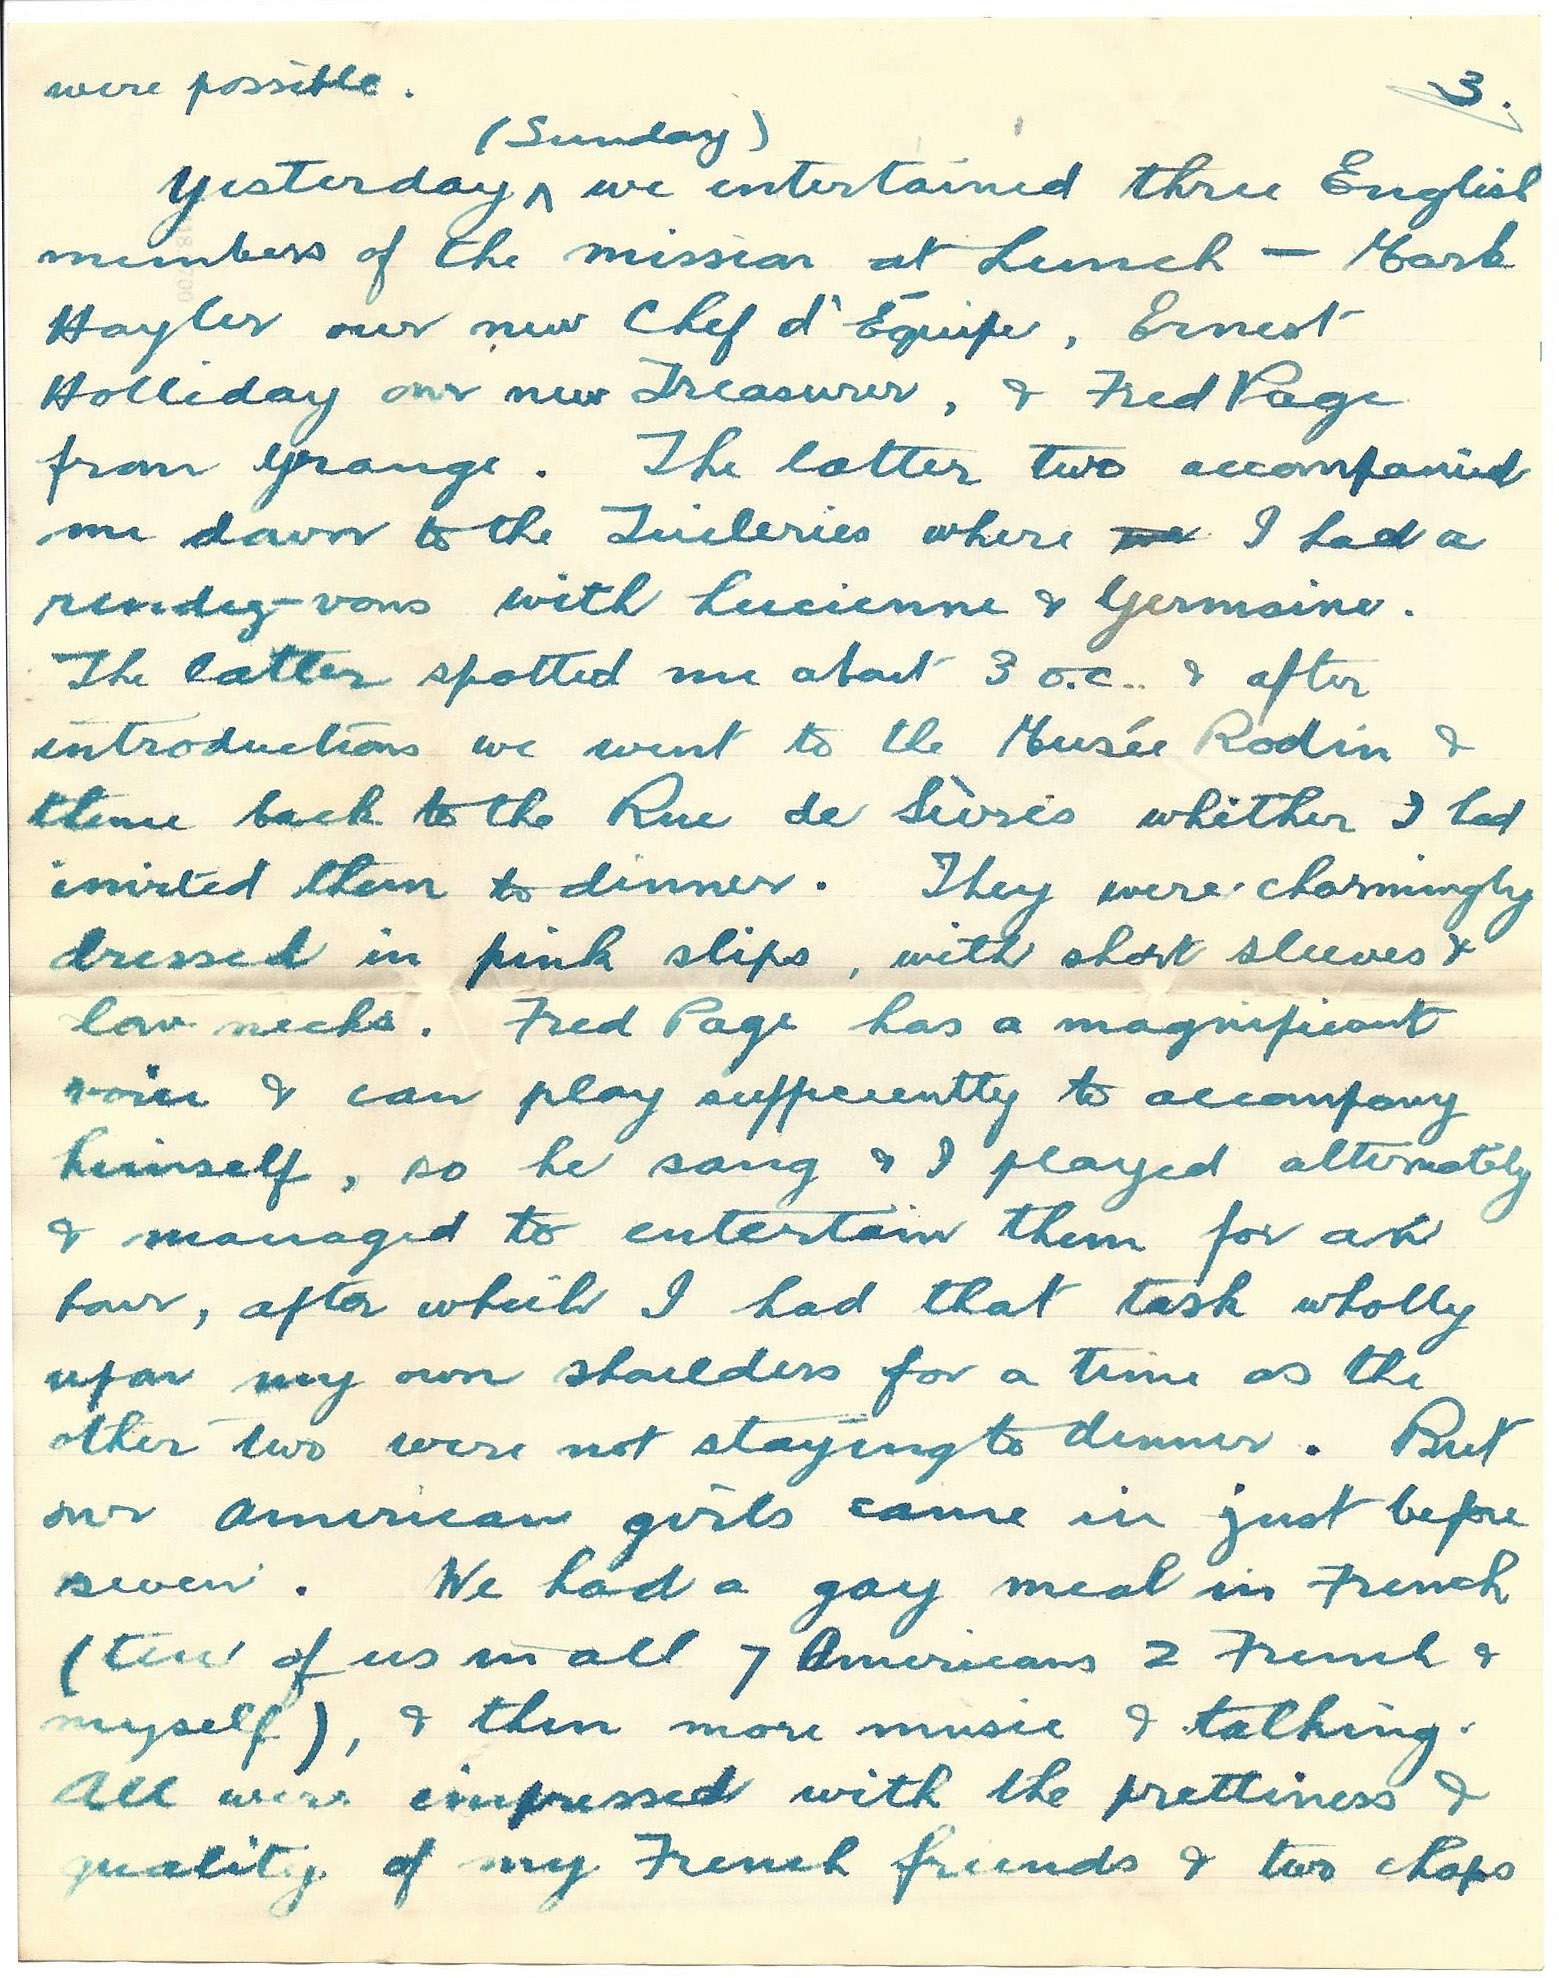 were possible.
3.
(Sunday)
Yesterday ^ we entertained three English
members of the mission at lunch — Mark
Hayler our new Chef d'Équipe, Ernest
Holliday our new Treasurer, & Fred Page
from Grange. The latter two accompanied
me down to the Tuileries where we I had a
rendez-vous with Lucienne & Germaine.
The latter spotted me about 3 o.c. & after
introductions we went to the Musée Rodin &
thence back to the Rue de Sèvres whither I had
invited them to dinner. They were charmingly
dressed in pink slips, with short sleeves &
low necks. Fred Page has a magnificent
voice & can play sufficiently to accompany
himself, so he sang & I played alternately
& managed to entertain them for an
hour, after which I had that task wholly
upon my own shoulders for a time as the
other two were not staying to dinner. But
our American girls came in just before
seven. We had a gay meal in French
(ten of us in all 7 Americans 2 French &
myself), & then more music & talking.
All were impressed with the prettiness &
quality of my French friends & two chaps